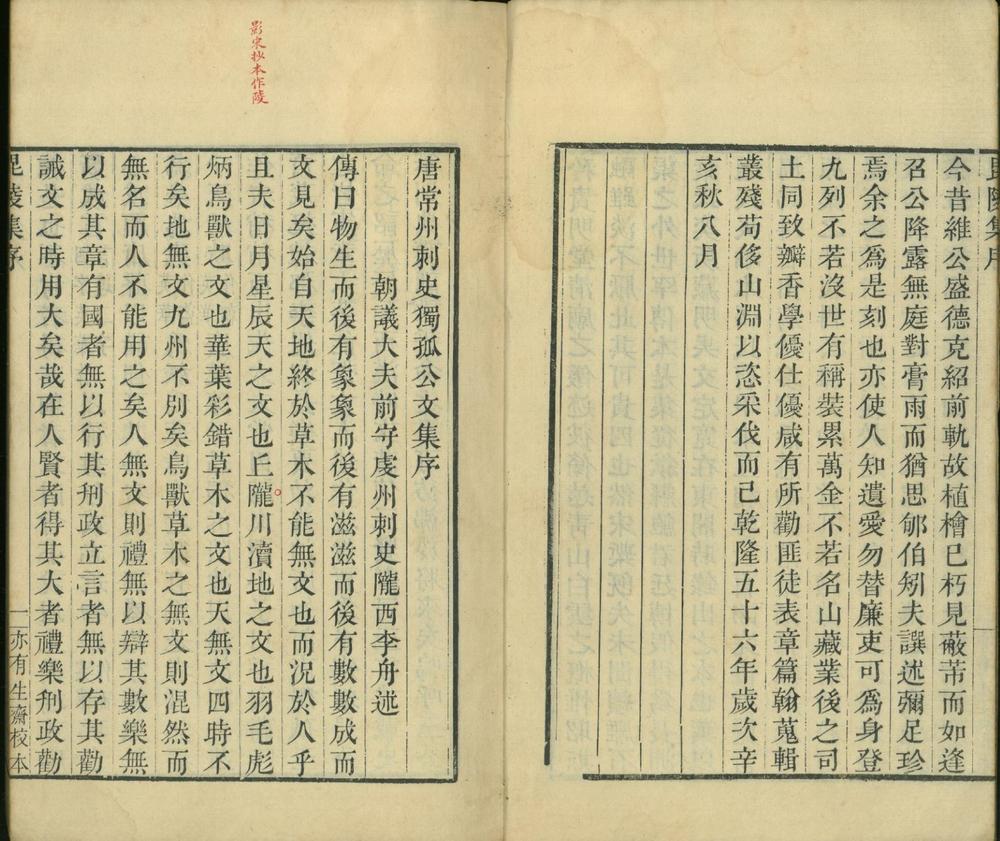 毘陵集序
今昔維公盛德克紹前軌故植檜已朽見蔽芾而如逢
召公降露無庭對膏雨而猶思郇伯矧夫譔述彌足珍
焉余之為是刻也亦使人知遺愛勿替廉吏可為身登
九列不若沒世有稱裝累萬金不若名山藏業後之司
土同致瓣香學優仕優咸有所勸匪徒表章篇翰蒐輯
叢殘苟侈山淵以恣采伐而已乾隆五十六年歲次辛
亥秋八月
影宋抄本作陵
唐常州刺史獨孤公文集序
朝議大夫前守虔州刺史隴西李舟述
傳曰物生而後有象象而後有滋滋而後有數數成而
文見矣始自天地終於草木不能無文也而況於人乎
且夫日月星辰天之文也丘隴川瀆地之文也羽毛彪
炳鳥獸之文也華葉彩錯草木之文也天無文四時不
行矣地無文九州不別矣鳥獸草木之無文則混然而
無名而人不能用之矣人無文則禮無以辯其數樂無
以成其章有國者無以行其刑政立言者無以存其勸
誡文之時用大矣哉在人賢者得其大者禮樂刑政勸
毘陵集序
一
亦有生齋校本